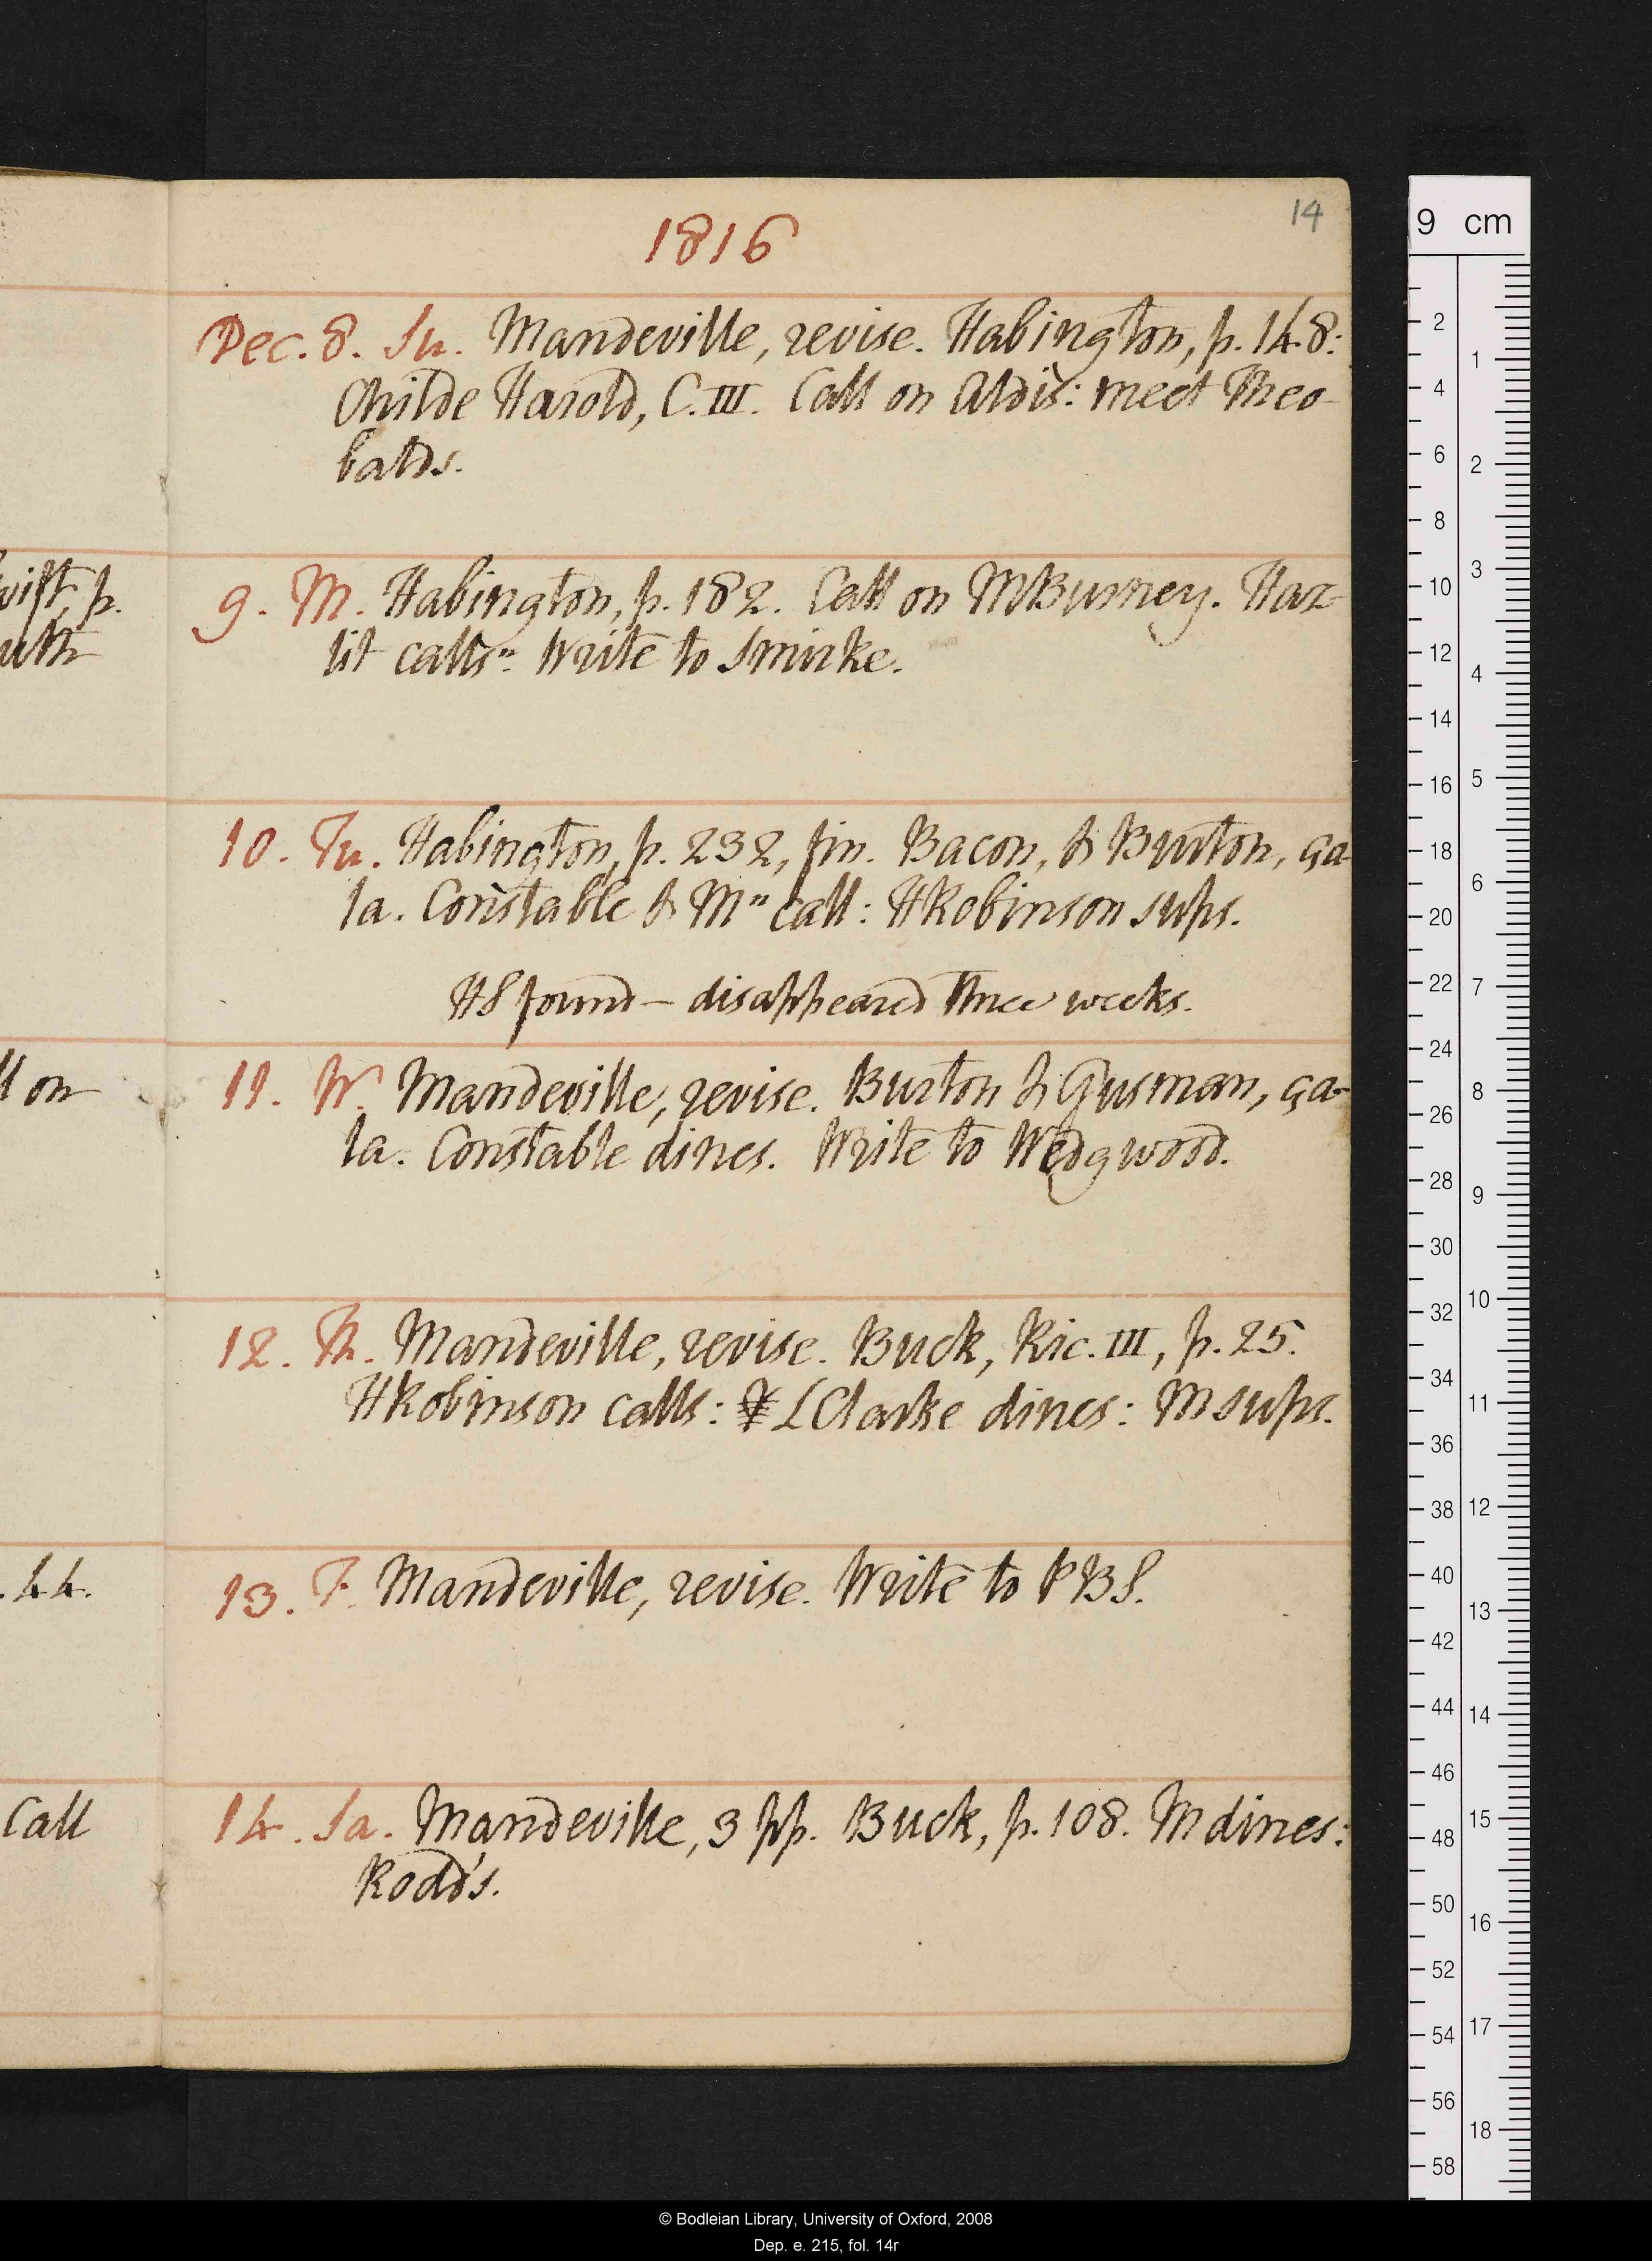 14
1816
Dec. 8. Su. Mandeville, revise. Habington, p. 148:
Childe Harold, C. III. Call on Aldis: meet Theo-
balds.
9. M. Habington, p. 182. Call on MBurney. Haz-
lit calls⁗. Write to Smirke.
10. Tu. Habington, p. 232, fin. Bacon, & Burton, ça
la. Constable & M⁗ call: HRobinson sups.
HS found — disappeared three weeks.
11. W. Mandeville, revise. Burton & Gusman, ça-
la. Constable dines. Write to Wedgwood.
12. Th. Mandeville, revise. Buck, Ric. III, p. 25.
HRobinson calls: LClarke dines: M sups.
13. F. Mandeville, revise. Write to PBS.
14. Sa. Mandeville, 3 pp. Buck, p. 108. M dines:
Rodd's.
wift, p.
uth
ll on
.44.
Call
9 cm
2
4
6
8
10
12
14
16
18
20
22
24
26
28
30
32
34
36
38
40
42
44
46
48
50
52
54
56
58
1
2
3
4
5
6
7
8
9
10
11
12
13
14
15
16
17
18
© Bodleian Library, University of Oxford, 2008
Dep. e. 215, fol. 14r